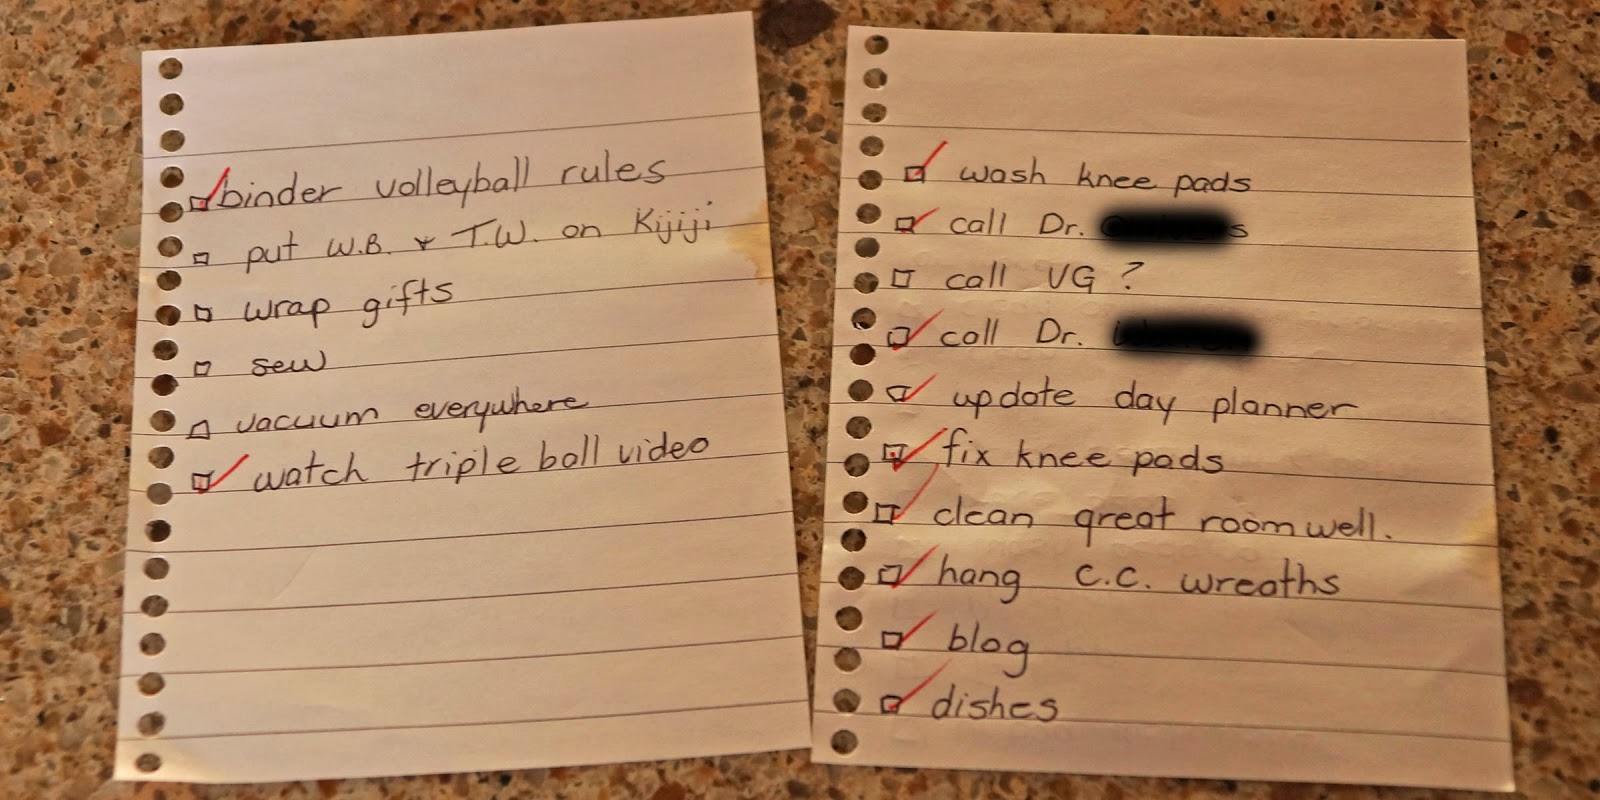 binder volleyball rules
put W.B. & T.W. on Kijiji
wrap gifts
sew
vacuum everywhere
watch triple ball video
wash knee pads
call Dr.
call VG ?
call Dr.
update day planner
fix knee pads
clean great room well.
hang C.C. wreaths
blog
dishes